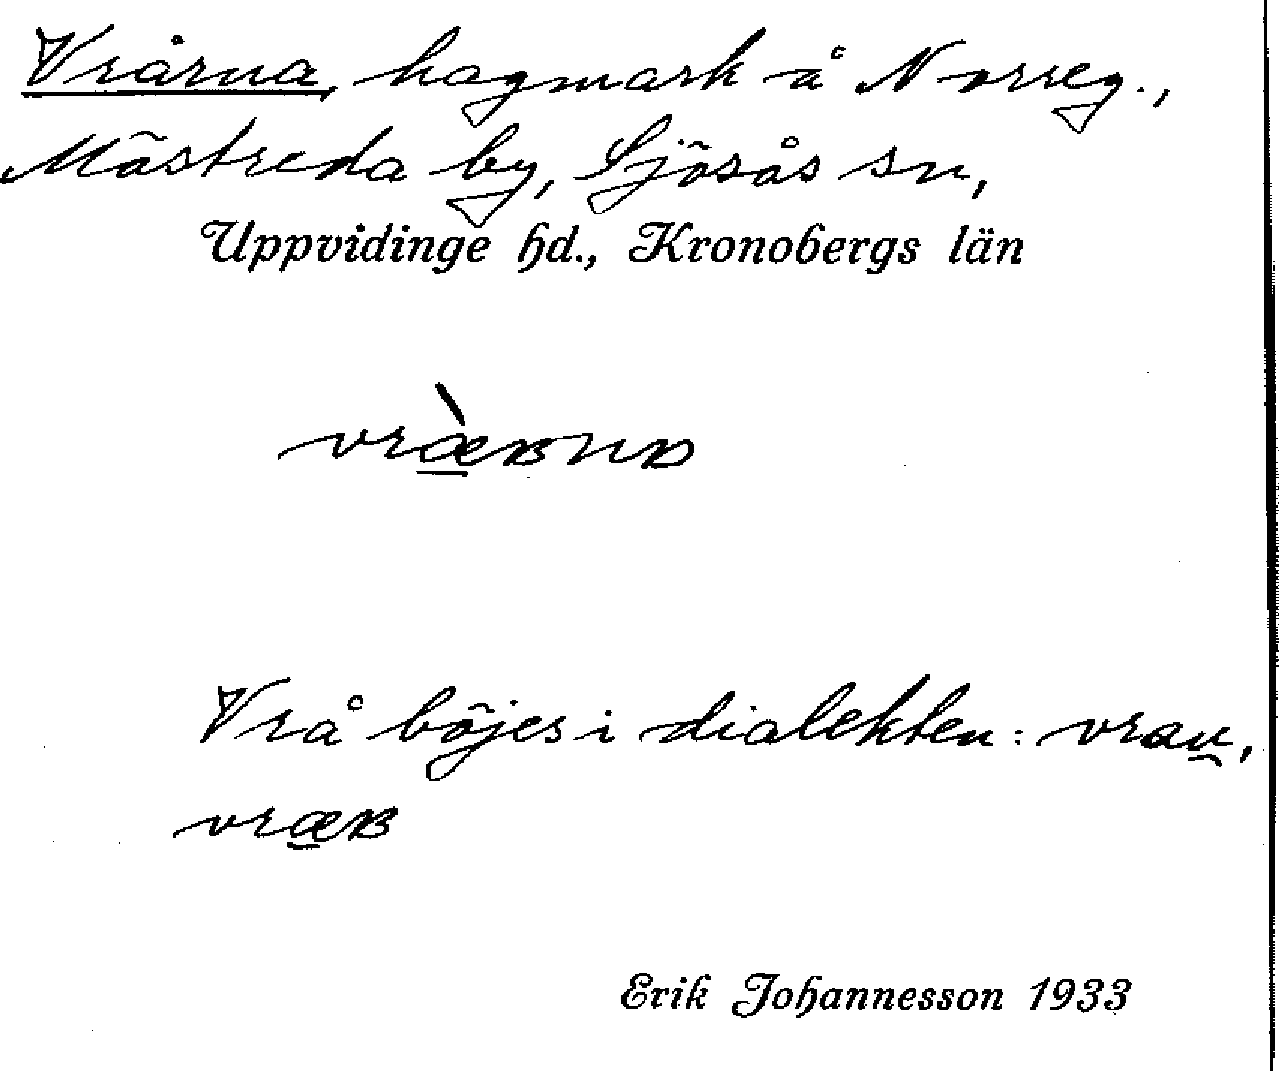 Vrårna, hagmark å Norreg.,
Möstreda by, Sjösås sn,
Uppvidinge hd., Kronobergs län
Vrå böjes i dialekten:
Erik Johannesson 1933